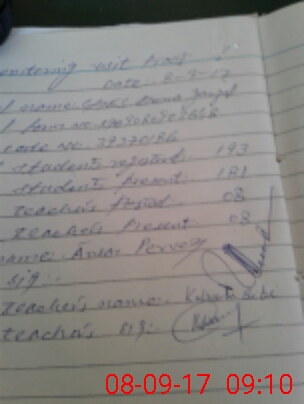 onitoring visit Proof
Date: 8-9-17
name GGPS
form no
code no. 39370186
students registered. 193
students present. 181
teachers Posted. 08
teacher's Present 08
name: Ansar Pervez
sig:.
teacher's name:. Kalsoom Bibi
teacher's sig:.
08-09-17 09:10